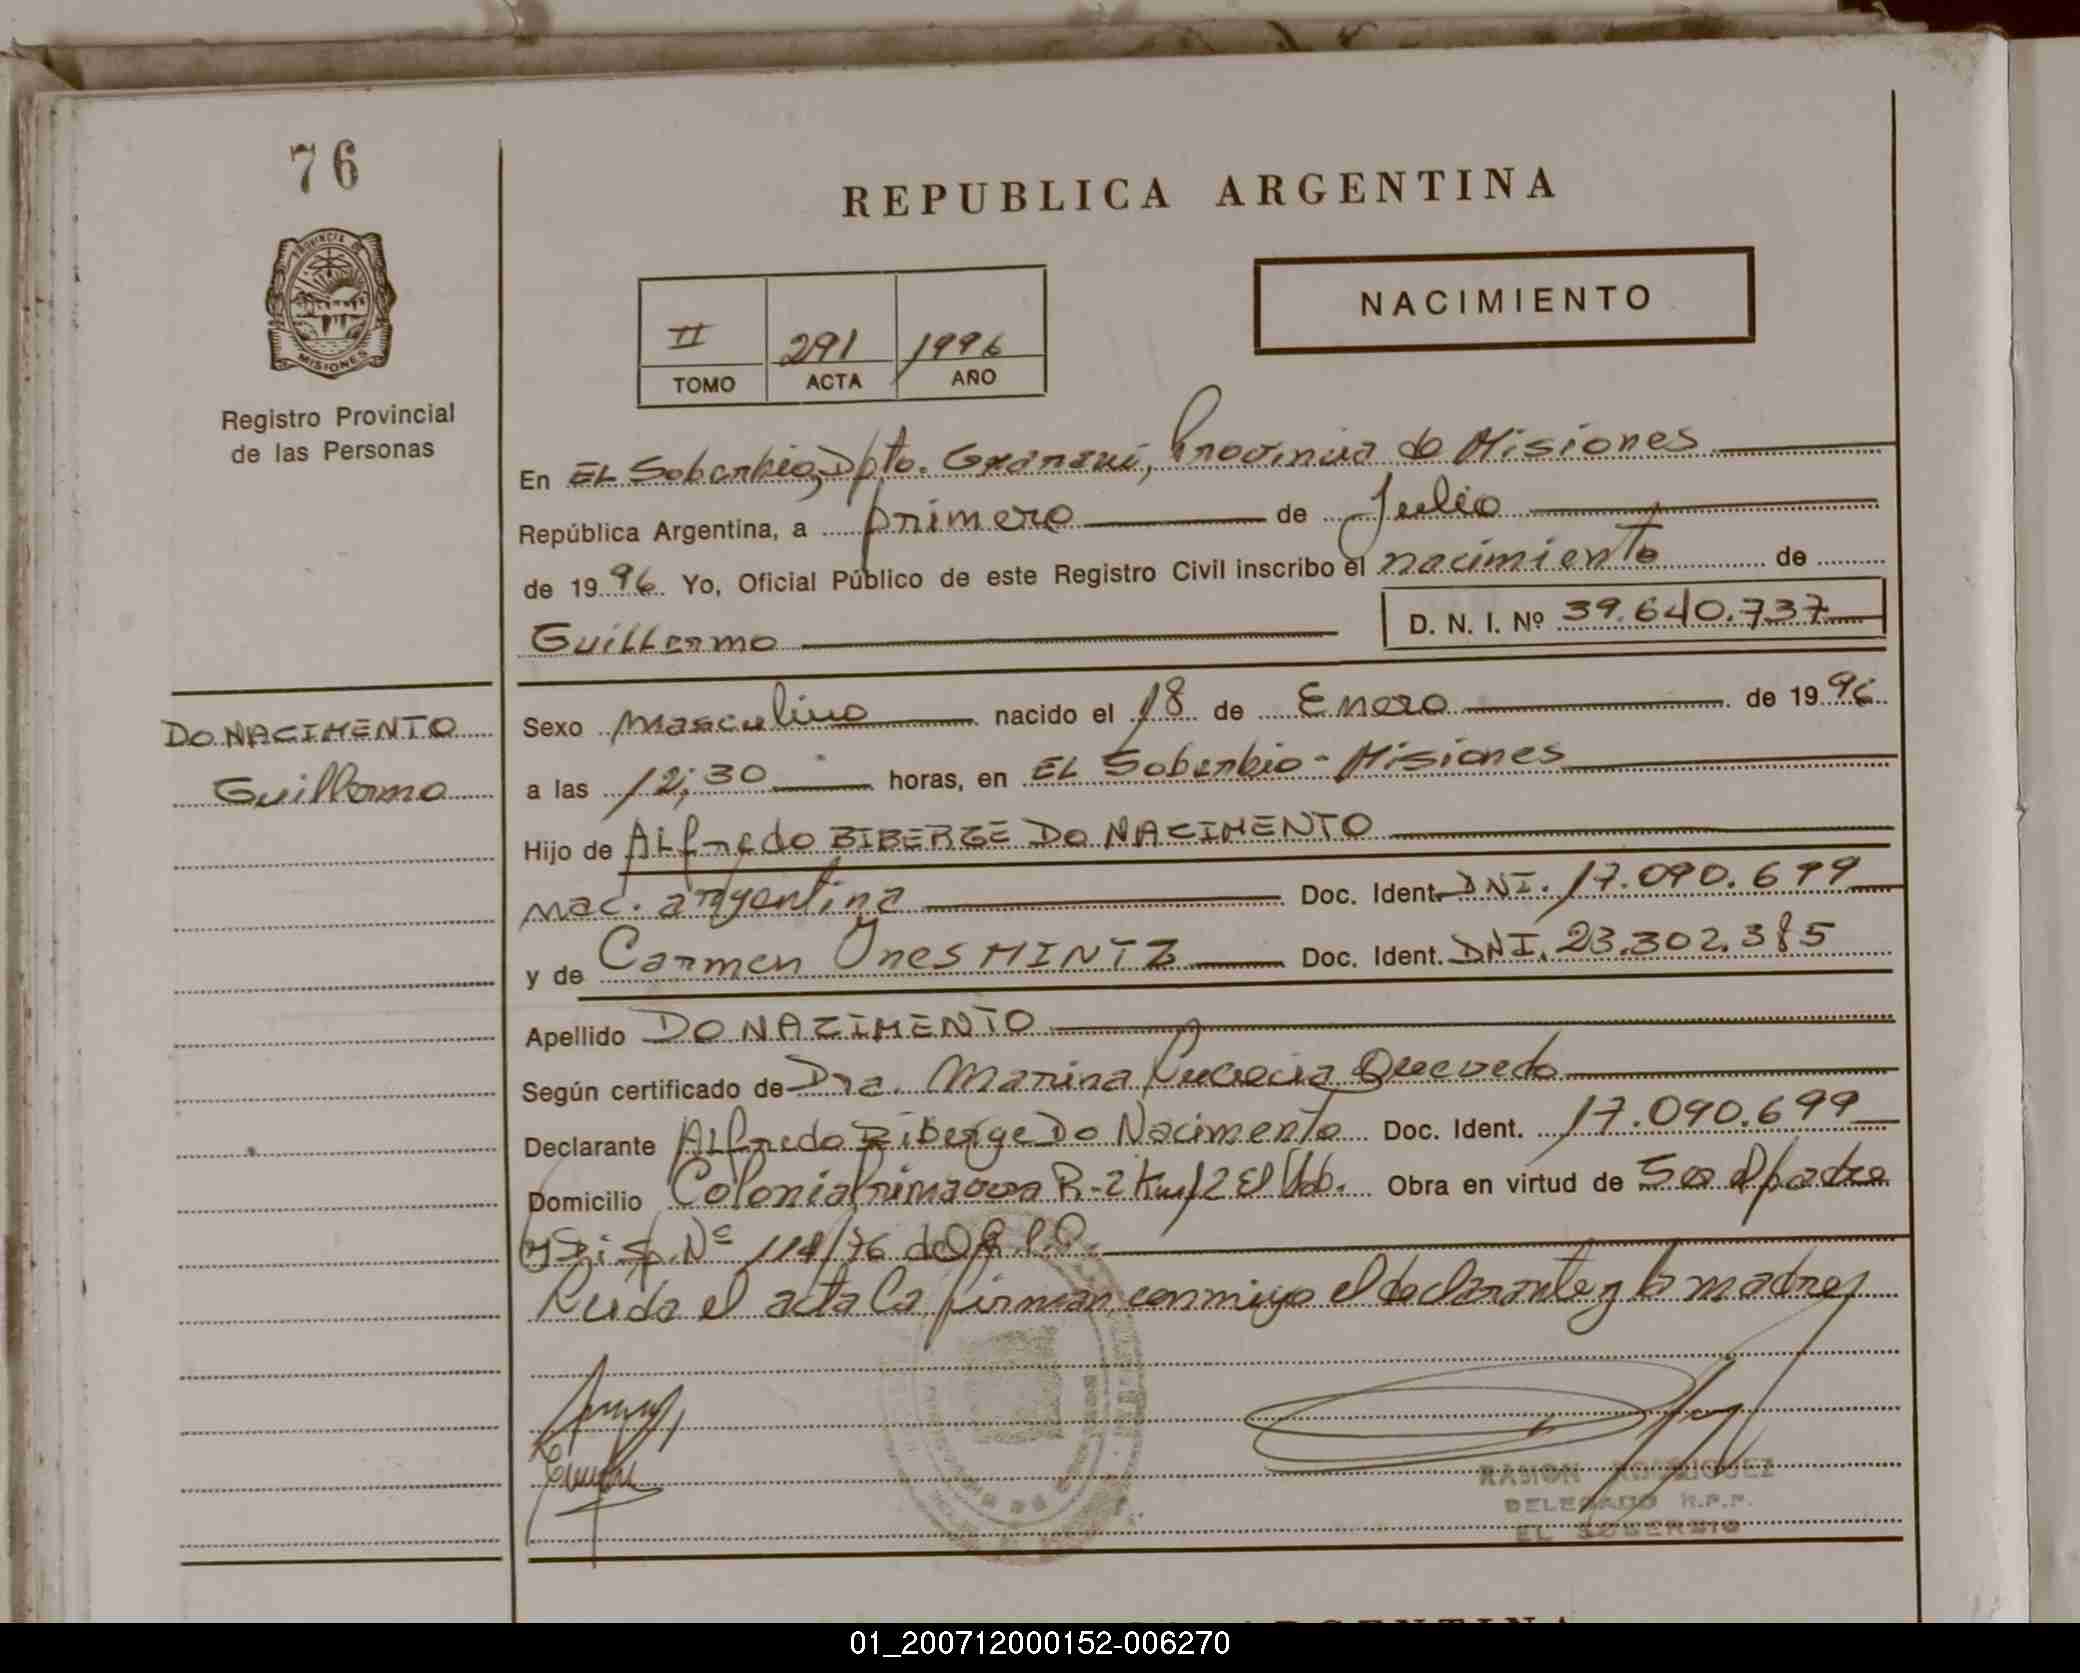 76
REPUBLICA ARGENTINA
PROVINCIA DE
MISIONES
NACIMIENTO
II 291 1996
TOMO ACTA AÑO
Registro Provincial
de las Personas
En EL Soberbio, Dpto. Guaraní, Provincia de Misiones
República Argentina, a primero de Julio
de 1996 Yo, Oficial Público de este Registro Civil inscribo el nacimiento de
Guillermo D. N. I. Nº 39.640.737
DO NACIMENTO
Guillermo
Sexo masculino nacido el 18 de Enero de 1996
a las 12;30 horas, en EL Soberbio - Misiones
Hijo de Alfredo BIBERGE DO NACIMENTO
nac. argentina Doc. Ident. DNI. 17.090.699
y de Carmen Ines HINTZ Doc. Ident. DNI. 23.302.385
Apellido DO NACIMENTO
Según certificado de Dra. Marina Lucrecia Quevedo
Declarante Alfredo Biberge Do Nacimento Doc. Ident. 17.090.699
Domicilio Colonia Primavera R-2 Km 12 El Sob. Obra en virtud de Ser el padre
y Disp. Nº 114/76 del R.P.P.
Leida el acta la firman conmigo el declarante y la madre
RAMON RODRIGUEZ
DELEGADO R.P.P.
EL SOBERBIO
01_200712000152-006270